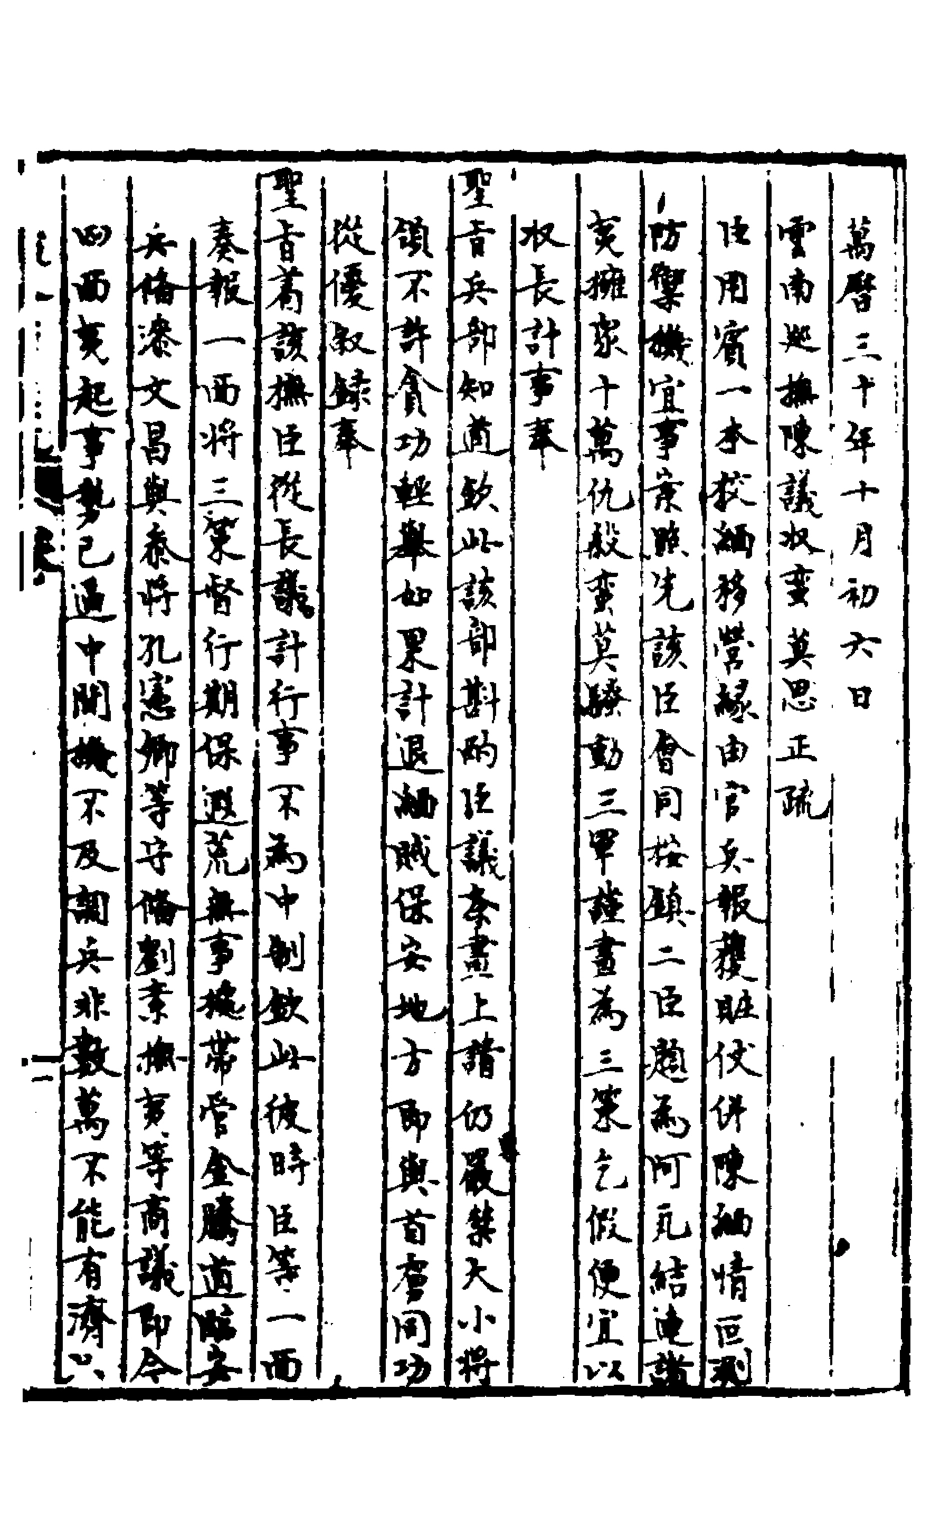 萬曆三十年十月初六日
雲南巡撫陳議收蠻莫思正疏
臣用賓一本挍緬移營緣由官兵報獲賍伏併陳緬情叵測
防禦機宜事案照先該臣會同按鎮二臣題為阿瓦結連諸
夷擁衆十萬仇殺蠻莫騷動三單謹畫為三策乞假便宜以
收長計事奉
聖旨兵部知道欽此該部斟酌臣議条畫上請仍嚴禁大小將
領不許貪功輕舉如累計退緬賊保安地方即與首虜同功
從優敘録奉
聖旨着該撫臣從長議計行事不為中制欽此彼時臣等一面
奏報一面將三策督行期保遐荒無事據帶管金騰道臨安
兵備漆文昌與叅將孔憲卿等守備劉素撫夷等商議即令
四面夷起事勢已逼中間機不及調兵非數萬不能有濟以